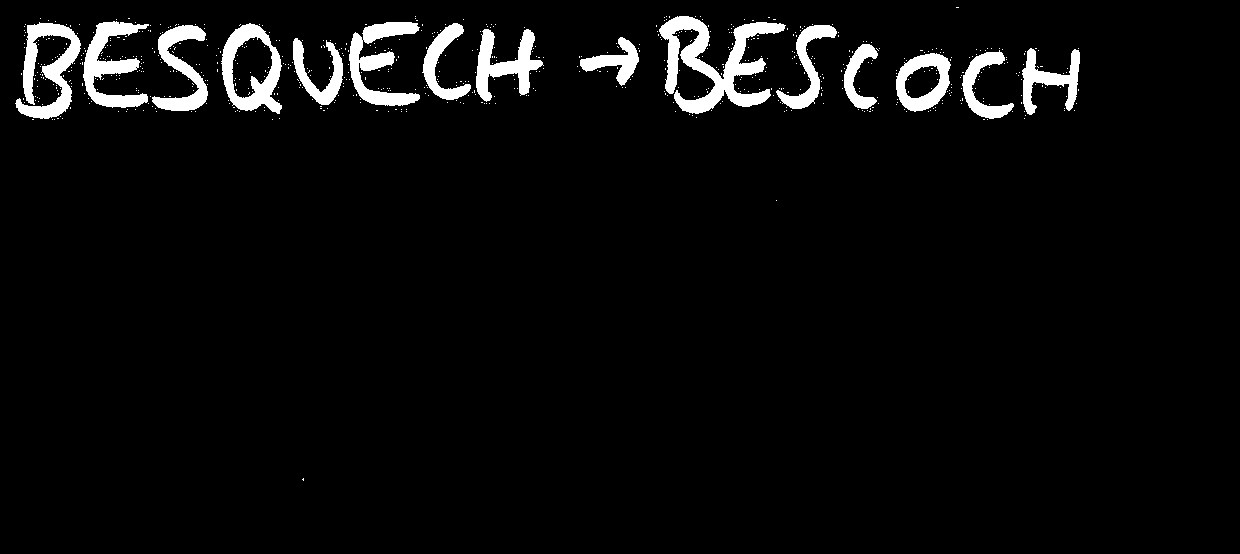 BESQUECH → BESCOCH